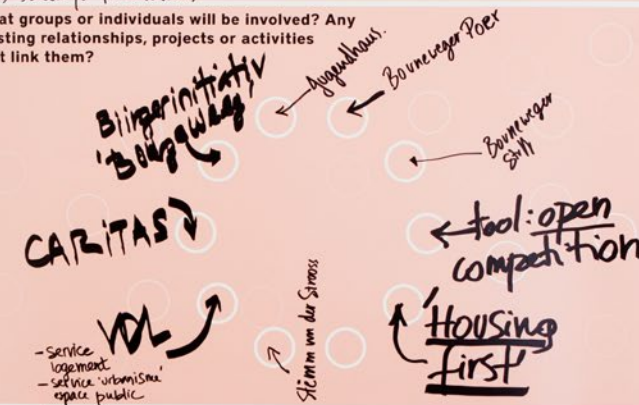 at groups or individuals will be involved? Any
sting relationships, projects or activities
t link them?
Jugendhaus.
Bouneweger Poer
Biirgerinitiativ
Bouneweger
Stuff
CARITAS
tool: open
competition
VDL
- service
logement
- service 'urbanisme'
espace public
Stëmm vun der Strooss
'Housing
first'